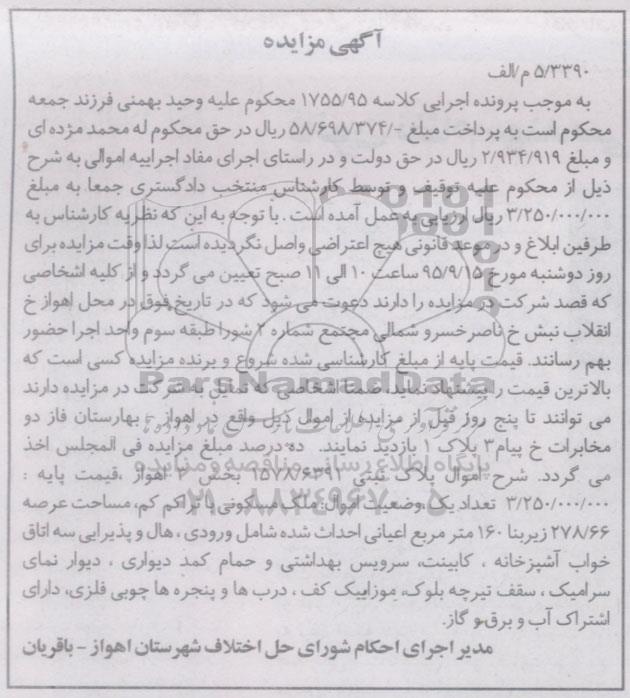 آگهی مزایده
۵/۳۳۹۰ م/الف
به موجب پرونده اجرایی کلاسه ۱۷۵۵/۹۵ محکوم علیه وحید بهمنی فرزند جمعه
محکوم است به پرداخت مبلغ -/۵۸/۶۹۸/۳۷۴ ریال در حق محکوم له محمد مژده ای
و مبلغ ۲/۹۳۴/۹۱۹ ریال در حق دولت و در راستای اجرای مفاد اجراییه اموالی به شرح
ذیل از محکوم علیه توقیف و توسط کارشناس منتخب دادگستری جمعا به مبلغ
۳/۲۵۰/۰۰۰/۰۰۰ ریال ارزیابی به عمل آمده است . با توجه به این که نظریه کارشناس به
طرفین ابلاغ و در موعد قانونی هیچ اعتراضی واصل نگردیده است لذا وقت مزایده برای
روز دوشنبه مورخ ۹۵/۹/۱۵ ساعت ۱۰ الی ۱۱ صبح تعیین می گردد و از کلیه اشخاصی
که قصد شرکت در مزایده را دارند دعوت می شود که در تاریخ فوق در محل اهواز خ
انقلاب نبش خ ناصرخسرو شمالی مجتمع شماره ۲ شورا طبقه سوم واحد اجرا حضور
بهم رسانند. قیمت پایه از مبلغ کارشناسی شده شروع و برنده مزایده کسی است که
بالاترین قیمت را پیشنهاد نماید. ضمنا اشخاصی که تمایل به شرکت در مزایده دارند
می توانند تا پنج روز قبل از مزایده از اموال ذیل واقع در اهواز – بهارستان فاز دو
مخابرات خ پیام۳ پلاک ۱ بازدید نمایند. ده درصد مبلغ مزایده فی المجلس اخذ
می گردد. شرح اموال پلاک ثبتی ۱۵۷۸/۶۳۹۱ بخش ۳ اهواز ،قیمت پایه :
۳/۲۵۰/۰۰۰/۰۰۰ تعداد یک وضعیت اموال: ملک مسکونی با تراکم کم، مساحت عرصه
۲۷۸/۶۶ زیربنا ۱۶۰ متر مربع اعیانی احداث شده شامل ورودی ، هال و پذیرایی سه اتاق
خواب آشپزخانه ، کابینت، سرویس بهداشتی و حمام کمد دیواری ، دیوار نمای
سرامیک ، سقف تیرچه بلوک، موزاییک کف ، درب ها و پنجره ها چوبی فلزی، دارای
اشتراک آب و برق و گاز.
مدیر اجرای احکام شورای حل اختلاف شهرستان اهواز - باقریان
ParsNamadData
پایگاه اطلاع رسانی مناقصه و مزایده